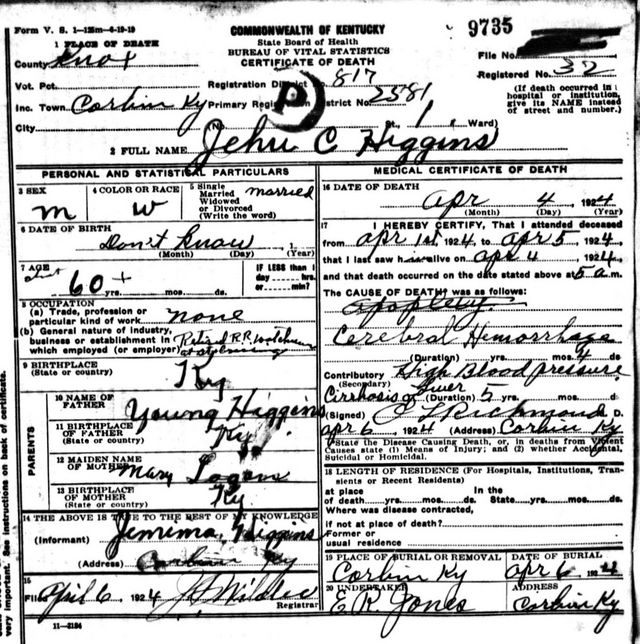 Form V. S. 1—125m—6-19-19
COMMONWEALTH OF KENTUCKY
State Board of Health
BUREAU OF VITAL STATISTICS
CERTIFICATE OF DEATH
9735
1 PLACE OF DEATH
County Knox
File No.
Registration District 817
Registered No. 32
Vot. Pct.
Inc. Town Corbin Ky Primary Registration District No. 2581
(If death occurred in a hospital or institution, give its NAME instead of street and number.)
P
City (No. St. 1 Ward)
2 FULL NAME Jehu C Higgins
PERSONAL AND STATISTICAL PARTICULARS
3 SEX m
4 COLOR OR RACE w
5 Single Married Widowed or Divorced (Write the word) married
6 DATE OF BIRTH
Don't know 1
(Month) (Day) (Year)
7 AGE
60 + yrs. mos. ds.
IF LESS than 1 day hrs. or min?
8 OCCUPATION
(a) Trade, profession or particular kind of work none
(b) General nature of industry, business or establishment in which employed (or employer) Retired R.R.
9 BIRTHPLACE
(State or country) Ky
PARENTS
10 NAME OF FATHER Young Higgins
11 BIRTHPLACE OF FATHER
(State or country) Ky
12 MAIDEN NAME OF MOTHER Mary Logan
13 BIRTHPLACE OF MOTHER
(State or country) Ky
14 THE ABOVE IS TRUE TO THE BEST OF MY KNOWLEDGE
(Informant) Jemima Higgins
(Address) Corbin Ky
15
Filed April 6 1924
Registrar
11—3184
MEDICAL CERTIFICATE OF DEATH
16 DATE OF DEATH
Apr 4 1924
(Month) (Day) (Year)
17 I HEREBY CERTIFY, That I attended deceased
from apr 1st 1924 to apr 5 1924,
that I last saw h alive on apr 4 1924,
and that death occurred on the date stated above at 5 a m.
The CAUSE OF DEATH was as follows:
apoplexy
Cerebral Hemorrhage
(Duration) yrs. mos. 4 ds
Contributory High Blood pressure
(Secondary)
Cirrhosis of Liver (Duration) 5 yrs. mos. d
(Signed) Richmond D.
apr 6 1924 (Address) Corbin Ky
State the Disease Causing Death, or, in deaths from Violent Causes state (1) Means of Injury; and (2) whether Accidental, Suicidal or Homicidal.
18 LENGTH OF RESIDENCE (For Hospitals, Institutions, Transients or Recent Residents)
at place of death yrs. mos. ds. In the State yrs. mos. ds.
Where was disease contracted,
if not at place of death?
Former or usual residence
19 PLACE OF BURIAL OR REMOVAL
Corbin Ky
DATE OF BURIAL
apr 6 1924
20 UNDERTAKER
E R Jones
ADDRESS
Corbin Ky
very important. See instructions on back of certificate.